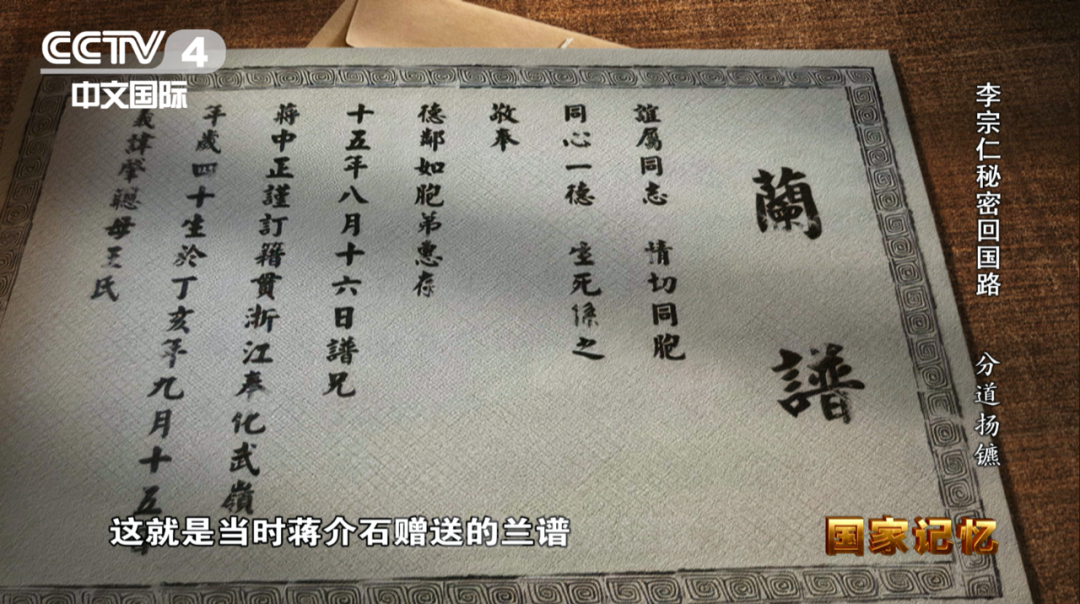 CCTV 4
中文国际
李宗仁秘密回国路
分道扬镳
蘭譜
誼属同志 情切同胞
同心一德 生死係之
敬奉
德鄰如胞弟惠存
十五年八月十六日譜兄
蔣中正謹訂籍貫浙江奉化武嶺
年歲四十生於丁亥年九月十五
諱肇聰母王氏
这就是当时蒋介石赠送的兰谱
国家记忆